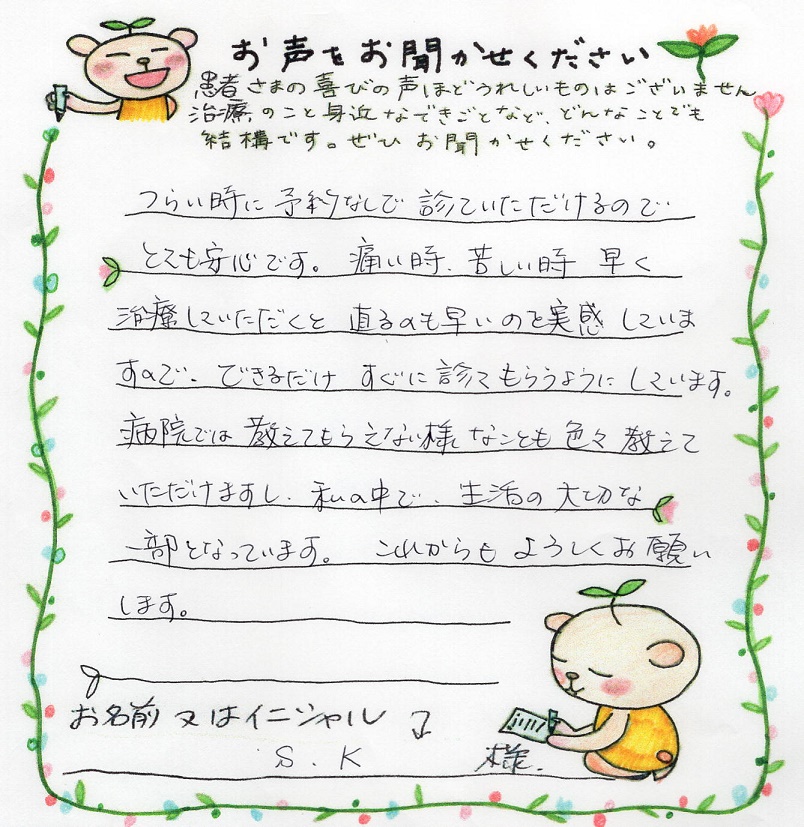 お声をお聞かせください
患者さまの喜びの声ほどうれしいものはございません
治療のこと身近なできごとなど、どんなことでも
結構です。ぜひ お聞かせください。
つらい時に 予約なしで 診ていただけるので
とても安心です。痛い時、苦しい時 早く
治療していただくと 直るのも早いのを実感 していま
すので、できるだけ すぐに診てもらうように しています。
病院では 教えてもらえない様なことも 色々 教えて
いただけますし、私の中で、生活の 大切な
一部となっています。これからも よろしくお願い
します。
お名前 又はイニシャル
S.K 様.